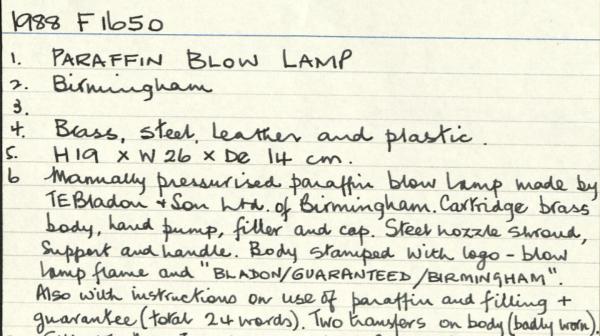 1988 F1650
1. PARAFFIN BLOW LAMP
2. Birmingham
3.
4. Brass, steel, leather and plastic.
5. H19 x W 26 x De 14 cm.
6 Manually pressurised paraffin blow lamp made by
TEBladon + Son Ltd. of Birmingham. Cartridge brass
body, hand pump, filler and cap. Steel nozzle shroud,
support and handle. Body stamped with logo - blow
lamp flame and "BLADON/GUARANTEED/BIRMINGHAM".
Also with instructions on use of paraffin and filling +
guarantee (total 24 words). Two transfers on body (badly worn).